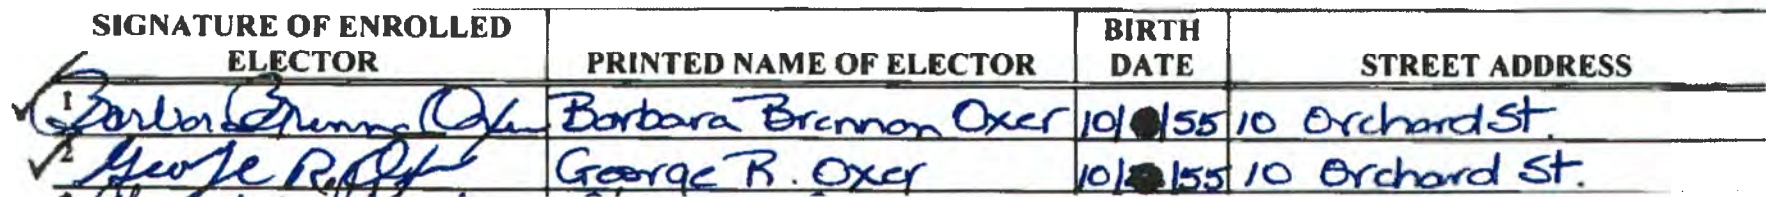 SIGNATURE OF ENROLLED ELECTOR PRINTED NAME OF ELECTOR BIRTH DATE STREET ADDRESS
1 Barbara Brennan Oxer Barbara Brennan Oxer 10/ /55 10 Orchard St.
2 George R. Oxer George R. Oxer 10/ /55 10 Orchard St.